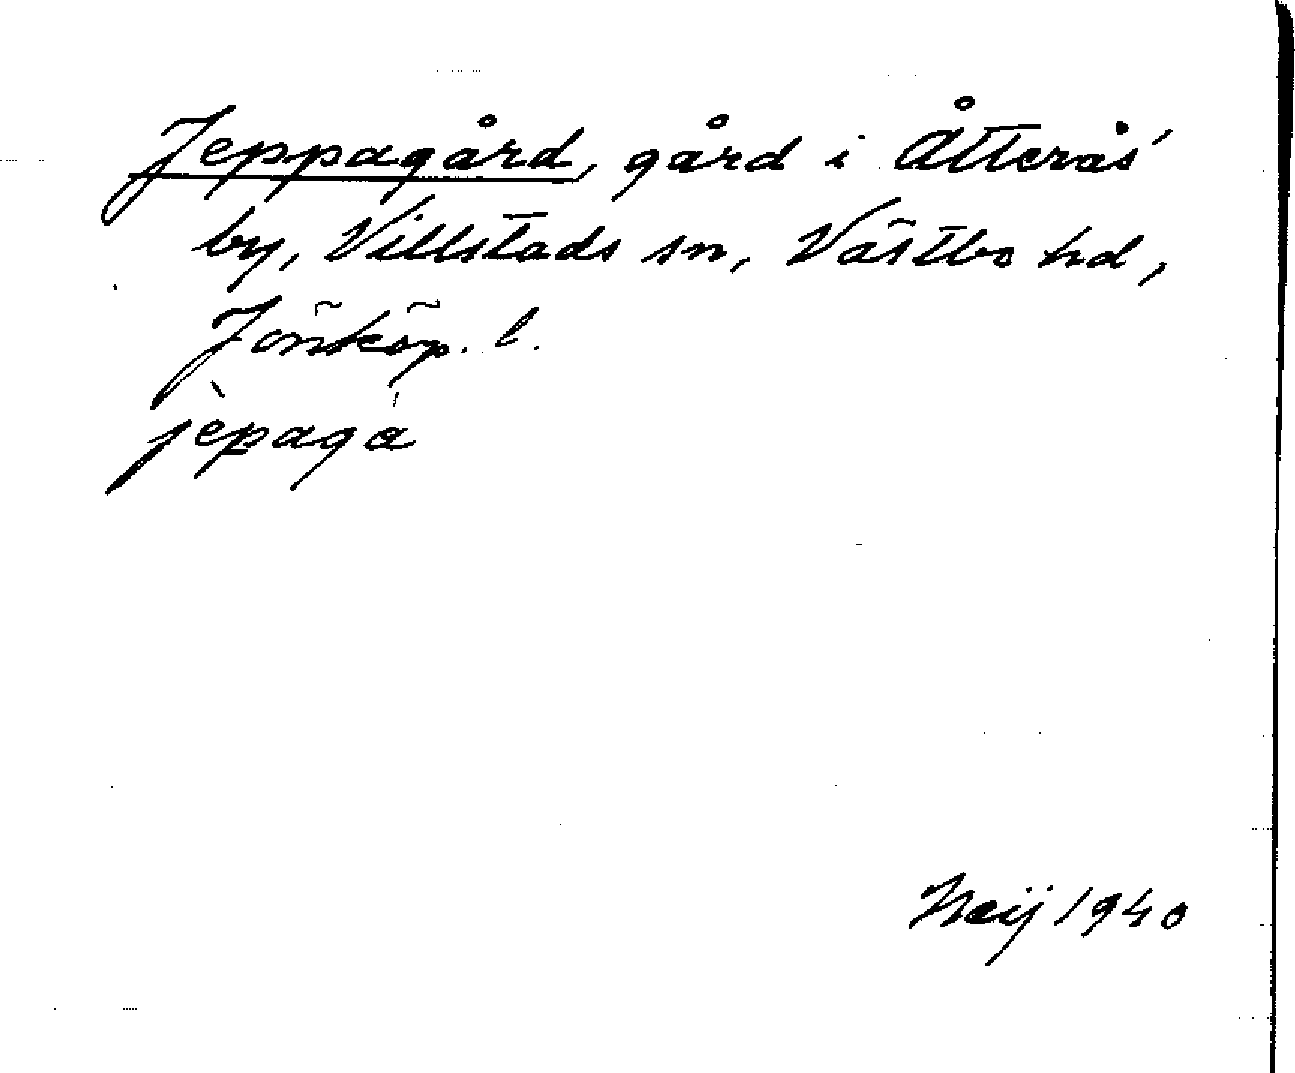 Jeppagård, gård i Åtterås
by, Villstads sn, Västbo hd,
Jönköp. l.
jèpagá
Heij 1940